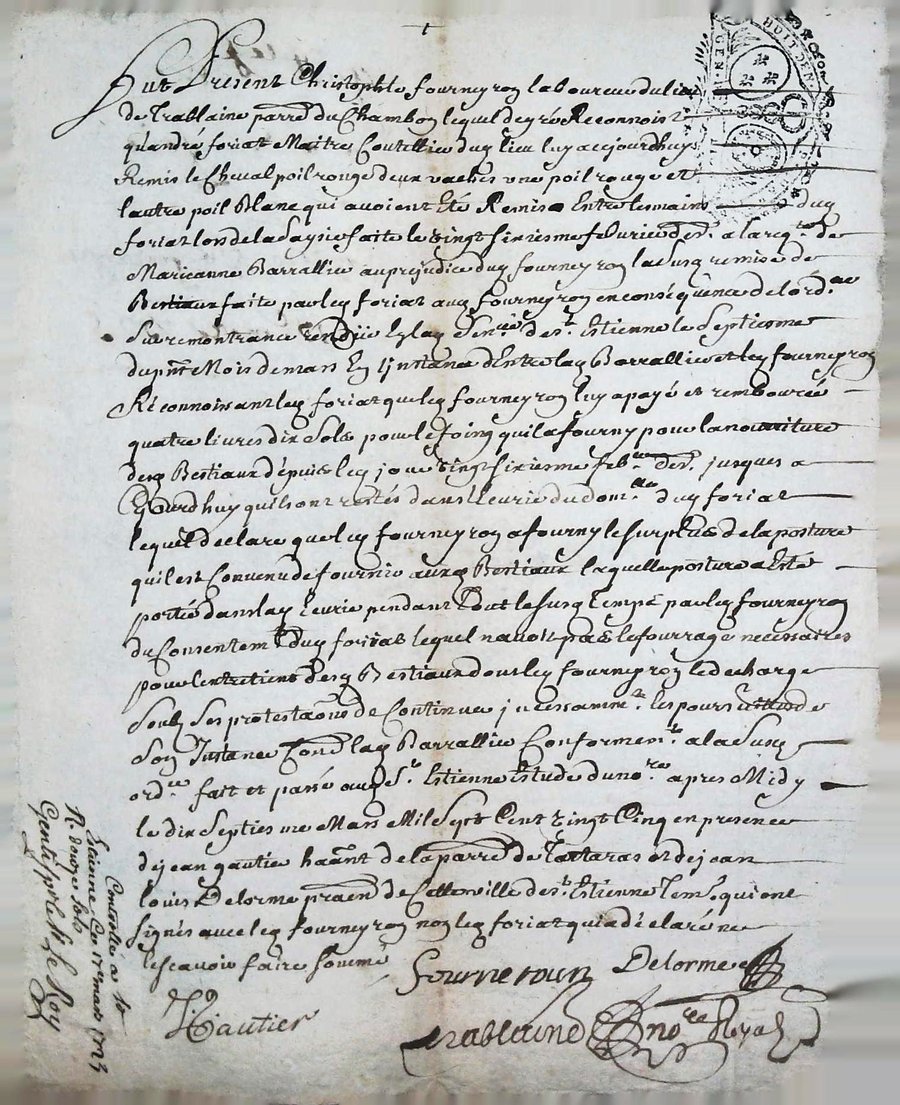 fut Present Christophle fourneyron laboureur du lieu
de Trablaine parre du Chambon lequel de gré Reconnoist
qu'andré foriat Maitre Coutellier dud lieu luy a cejourdhuy
Remis le Cheval poil rouge deux vaches une poil rouge et
lautre poil Blanc qui avoient Eté Remis Entre les mains dud
foriat lors de la Saysie faite le vingt sixiesme febvrier der. a la req.te de
Marieanne Barrallier au prejudice dud fourneyron la susd remise de
Bestiaux faite par led foriat aud fourneyron en conséquence de lord.ce
Sur remontrance rendüe En la Sen. de St. Estienne le Septiesme
du pnt Mois de mars En l'jnstance d'Entre lad Barrallier et led fourneyron
Réconnoissant led foriat que led fourneyron luy a payé et rembourcé
quatre livres dix Sols pour le foing quil a fourny pour la nourriture
desd Bestiaux dépuis led jour vingt sixiesme feb. der. jusques a
Cejourdhuy quils ont restés dans l'eurie du dom.lle dud foriat
lequel declare que led fourneyron a fourny le surplus de la posture
quil est Convenu de fournir auxd Bestiaux laquelle posture a Esté
portée dans lad eurie pendant tout le susd temps par led fourneyron
du Consentem.t dud foriat lequel n'avoit pas le fourrage nécessaires
pour l'entretient desd Bestiaux dont led fourneyron le decharge
Soubz Ses protestaons de Continuer jncessamme.t les poursuittes de
Son Jnstance Cond lad Barrallier Conformem.t a la Susd
ord.ce fait et passé aud St. Estienne Estude du no.re apres Midy
le dix Septiesme Mars Mil Sept Cent vingt Cinq en presence
de jean gautier haant de la parre de Tartaras et de jean
louis Delorme praen de Cette ville de St. Estienne Tem. qui ont
signés avec led fourneyron non led foriat qui a déclaré ne
le scavoir faire sommé
fourneroun Delorme
J Gautier
Trablaine no.re Royal
Controllé a St
Etienne Ce mars 1725
R. douze Sols